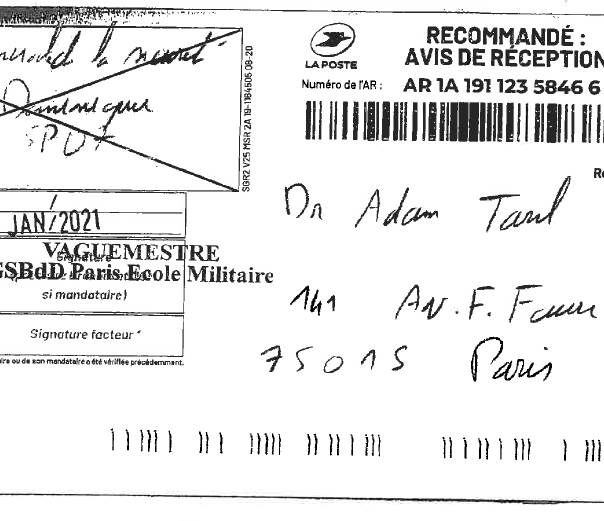 RECOMMANDÉ :
AVIS DE RÉCEPTION
LA POSTE
Numéro de l'AR : AR 1A 191 123 5846 6
SGR2 V25 MSR 2A 19-1184606 08-20
Dr Adam
JAN/2021
VAGUEMESTRE
Signature
GSBdD Paris Ecole Militaire
si mandataire)
141 Av. F. Faure
Signature facteur *
75015 Paris
ire ou de son mandataire a été vérifiée précédemment.